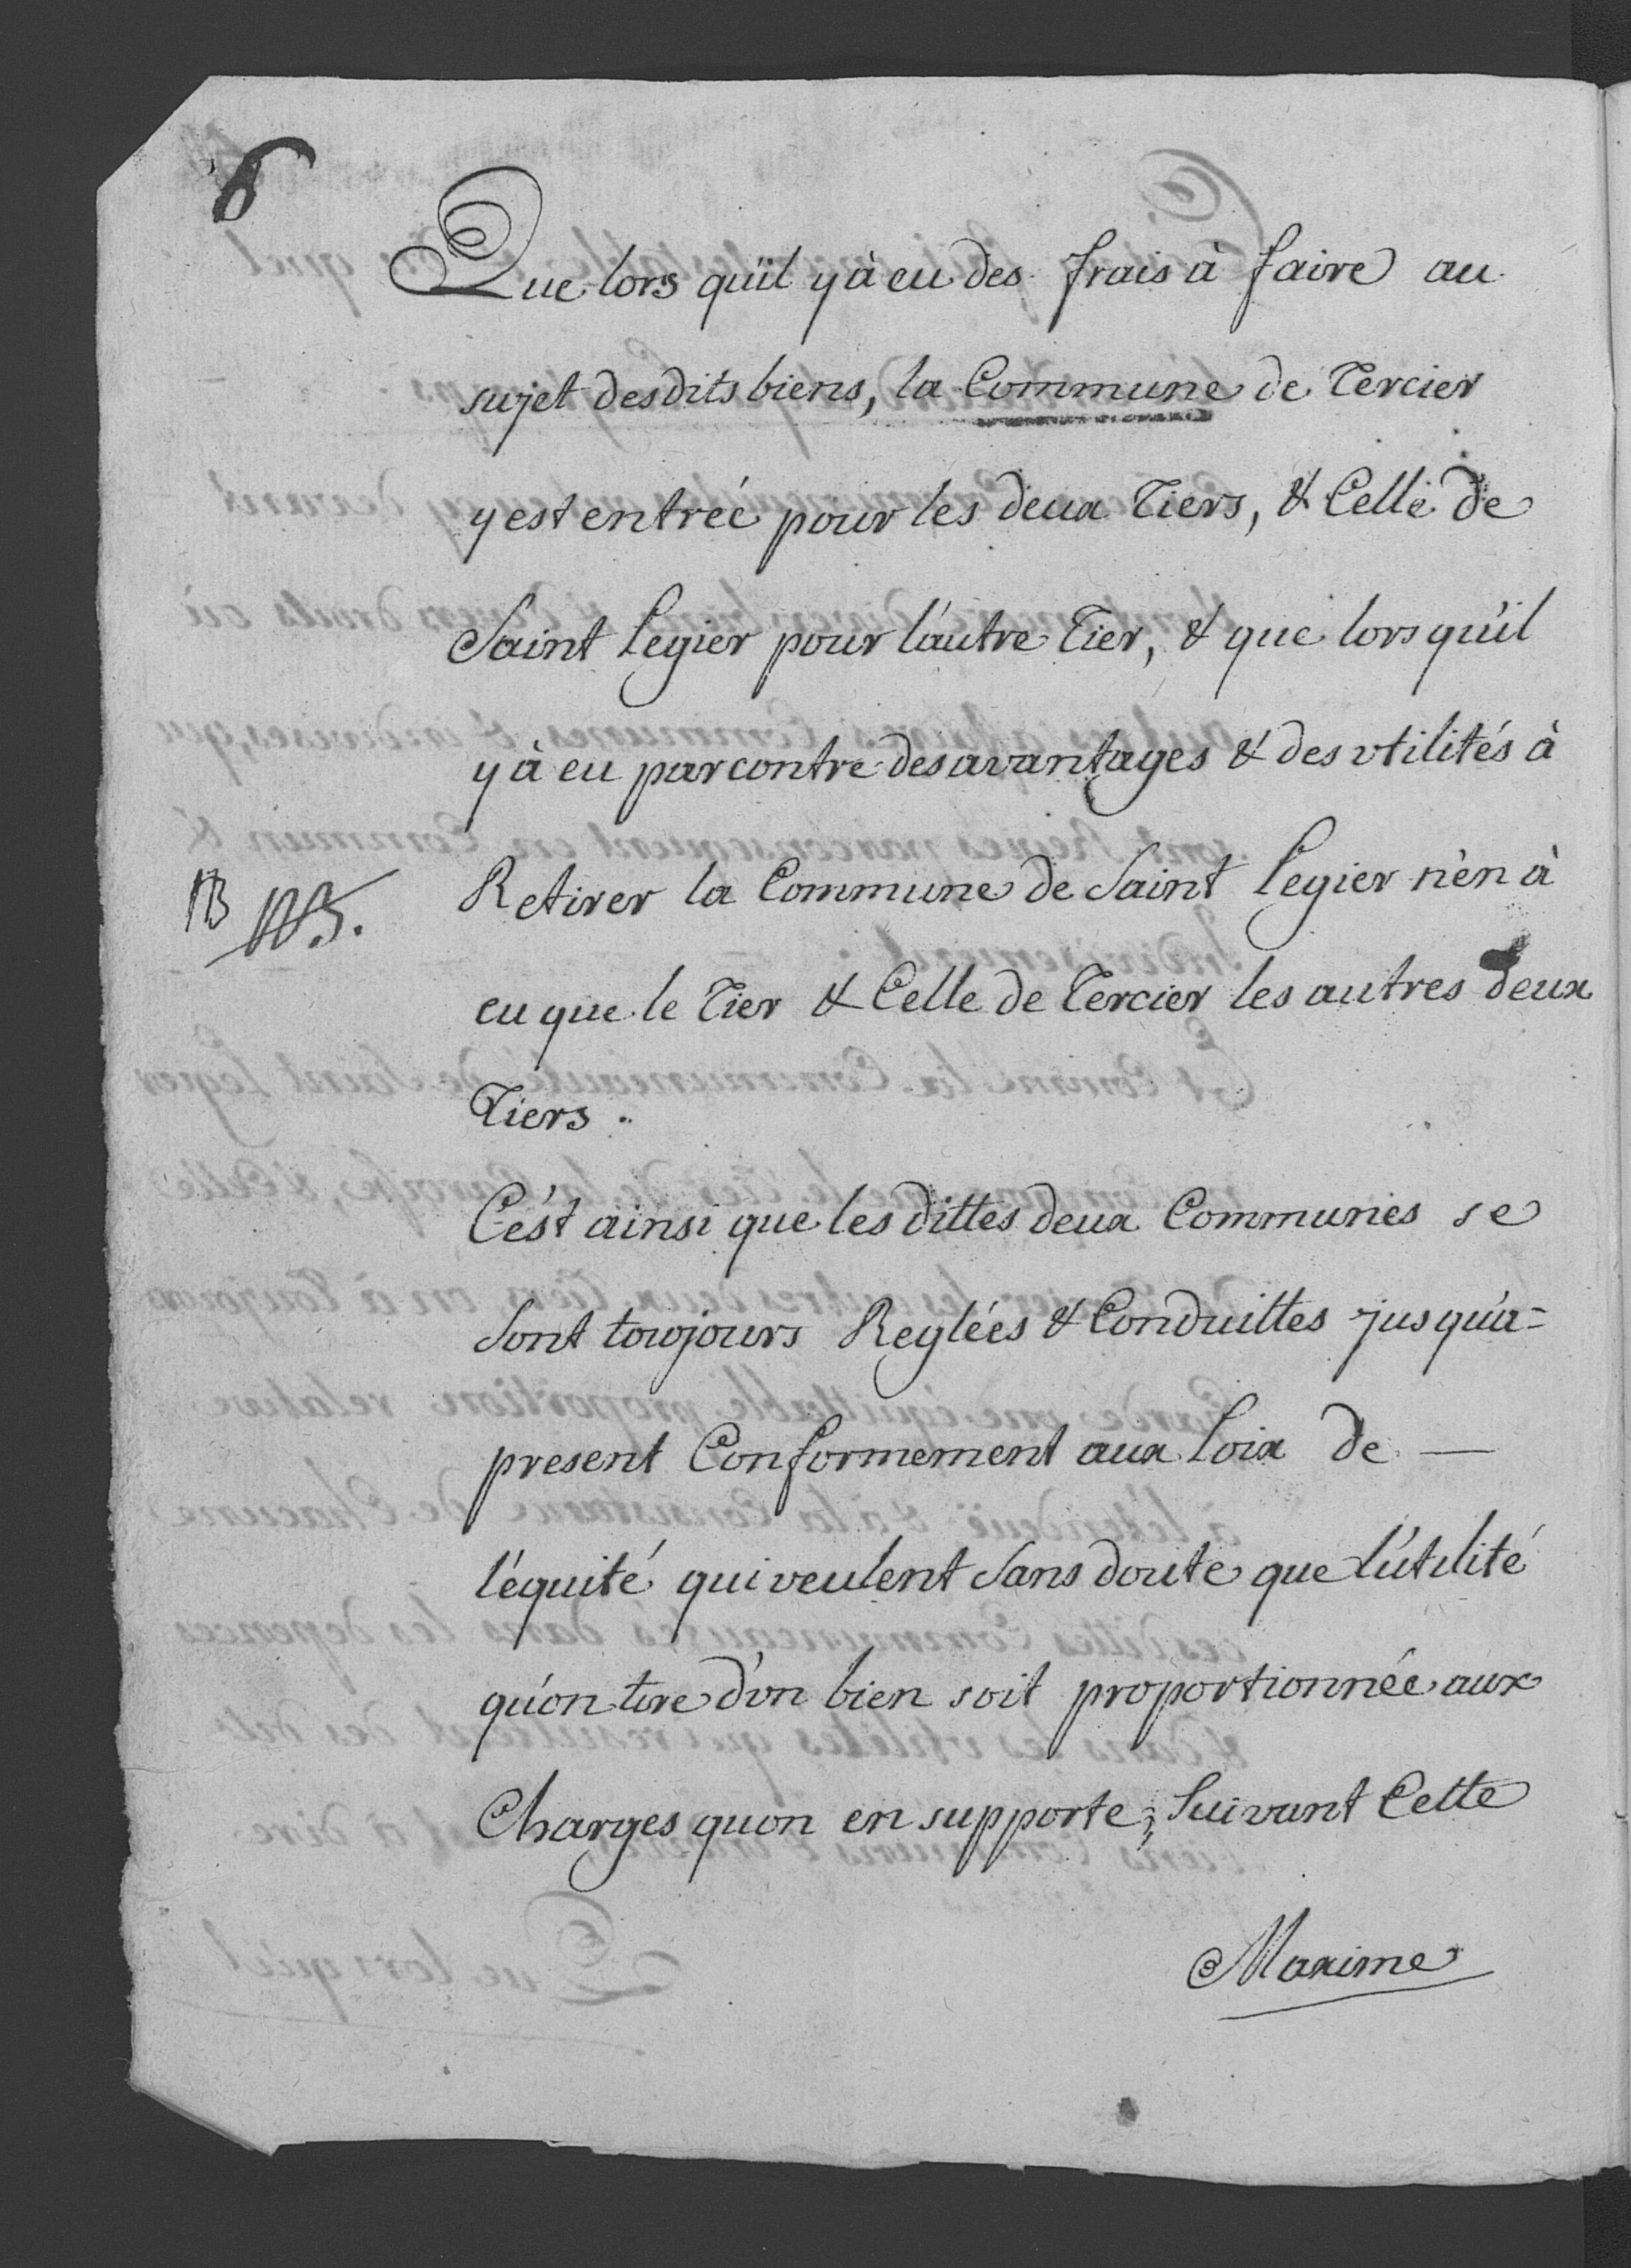 6
Que lors qu'il y à eu des frais à faire au
sujet desdits biens, la Commune de Tercier
y est entrée pour les deux Tiers, & Celle de
Saint Legier pour l'autre Tier, & que lors qu'il
y à eu par contre des avantages & des vtilités à
NB NB. Retirer la Commune de Saint Legier n'en à
eu que le Tier & Celle de Tercier les autres deux
Tiers.
C'est ainsi que les dittes deux Communes se
sont toujours Reglées & Conduittes jusqu'a=
present Conformement aux Loix de —
l'équité qui veulent sans doute que l'utilité
qu'on tire d'vn bien soit proportionnée aux
Charges quon en supporte; Suivant Cette
Maxime